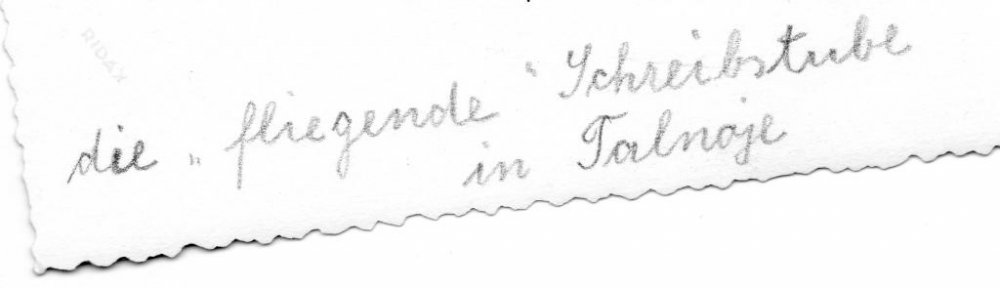 RIDAX
die „fliegende“ Schreibstube
in Talnoje